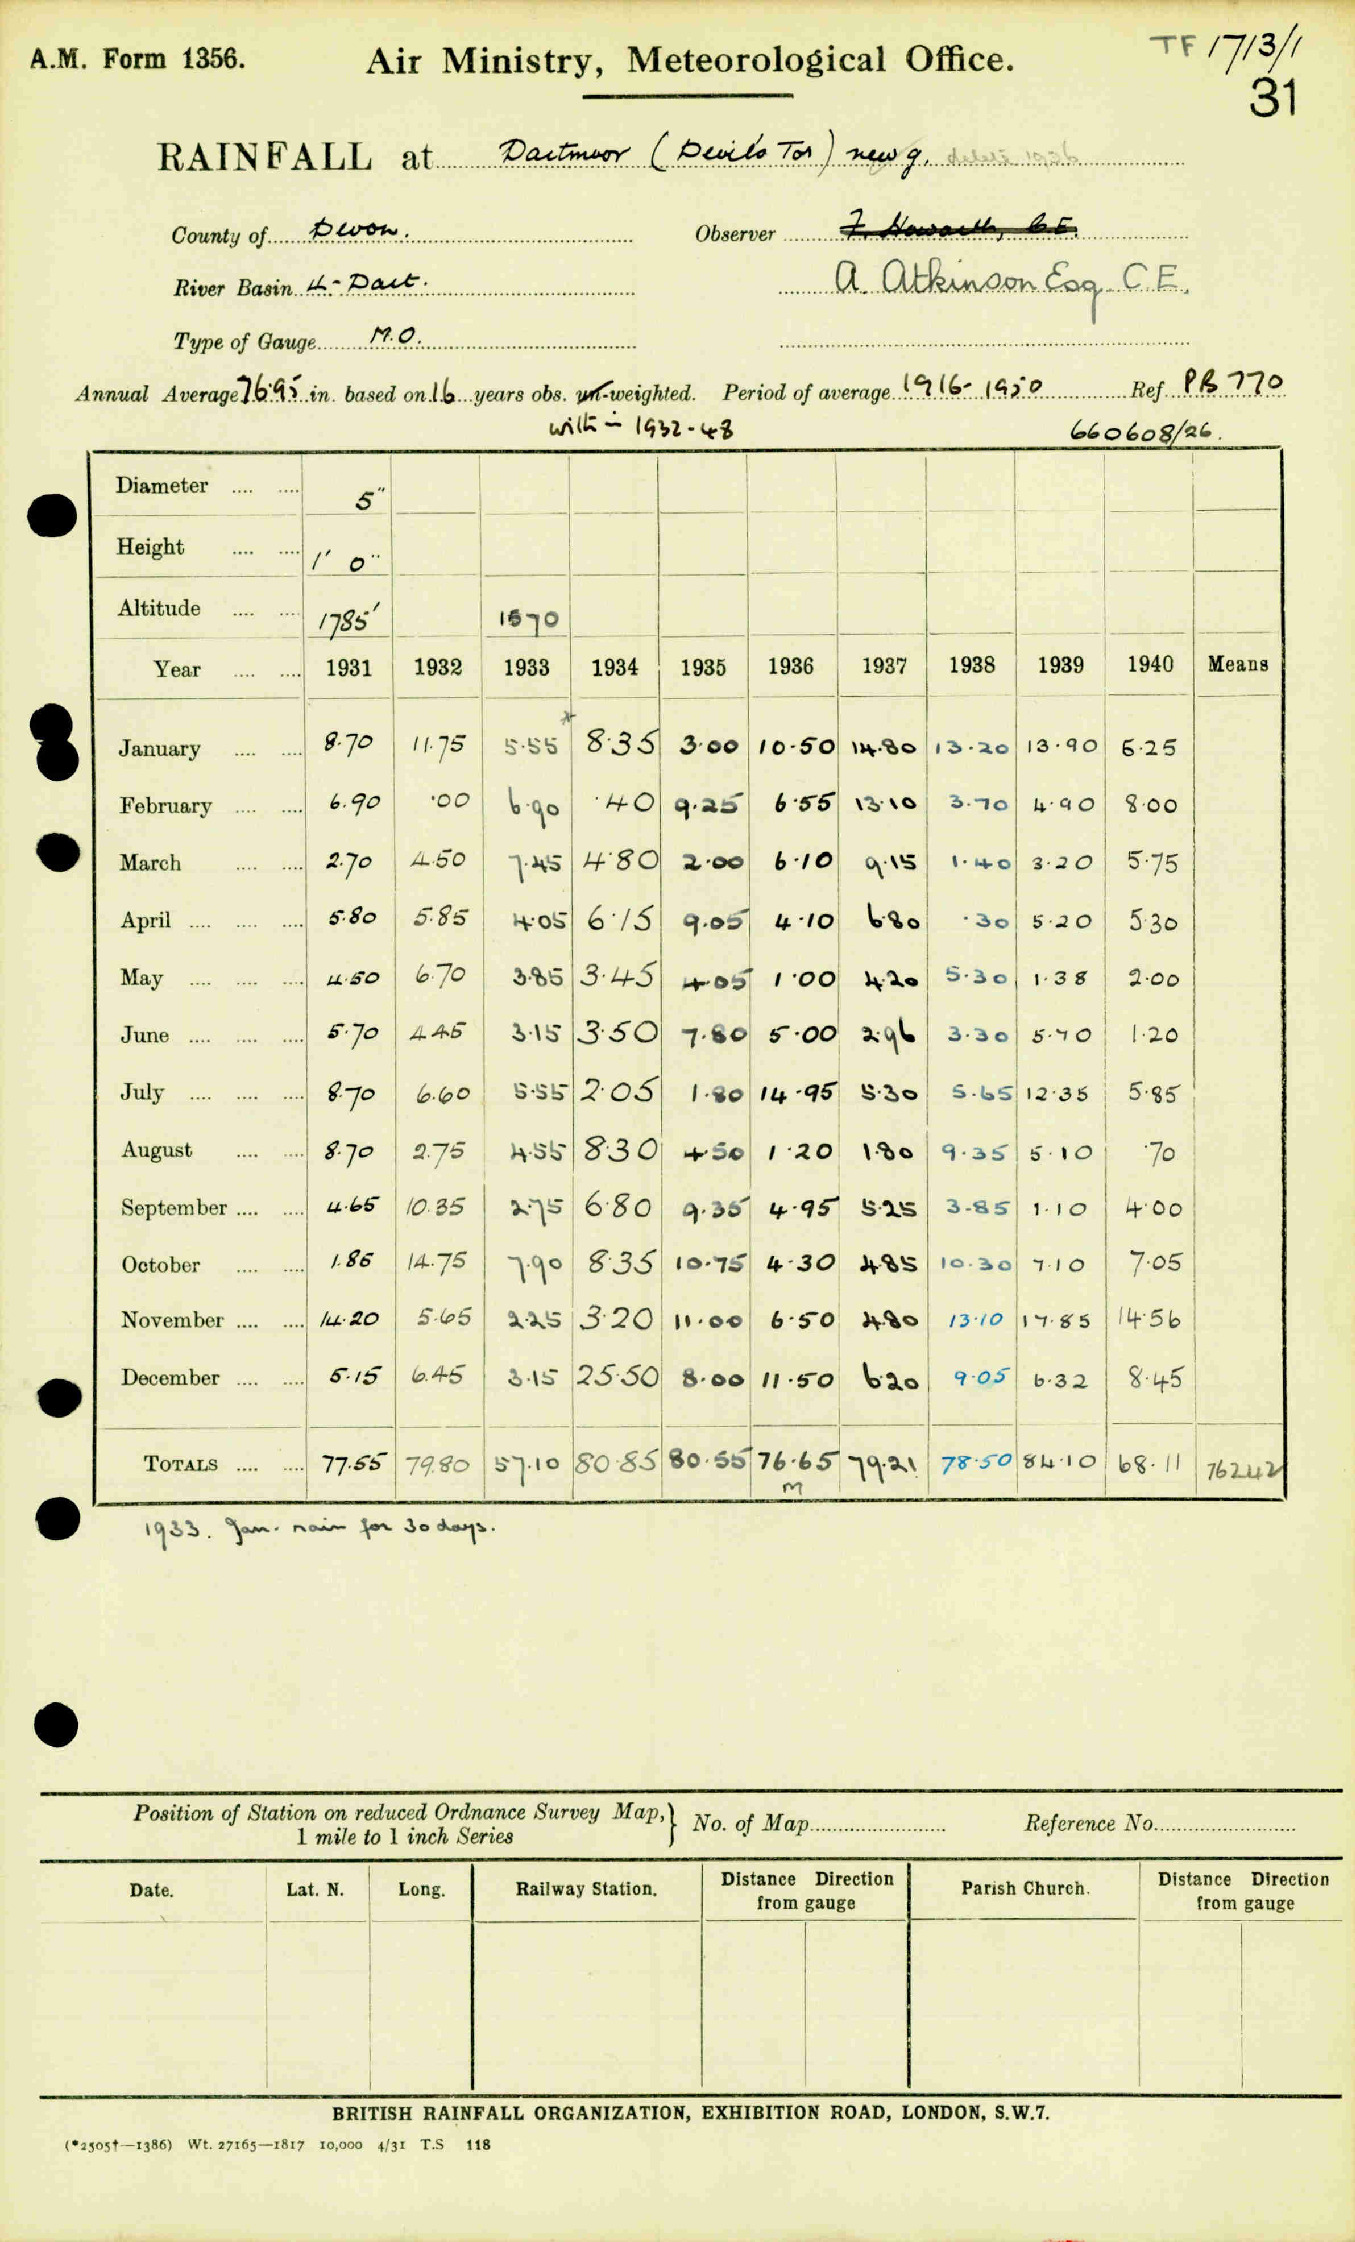 A.M. Form 1356.
Air Ministry, Meteorological Office.
TF 1713/1
31
RAINFALL at Dartmoor (Devils Tor) new g.
County of Devon. Observer F. Howarth, C.E.
River Basin 4-Dart. A. Atkinson Esq. C.E.
Type of Gauge M.O.
Annual Average 76.95 in. based on 16 years obs. un-weighted. Period of average 1916-1950 Ref. PB 770
with - 1932-48 660608/26.
Diameter .... .... 5"
Height .... .... 1' 0"
Altitude .... .... 1785' 1570
Year .... .... 1931 1932 1933 1934 1935 1936 1937 1938 1939 1940 Means
January .... .... 8.70 11.75 5.55* 8.35 3.00 10.50 14.80 13.20 13.90 6.25
February .... .... 6.90 .00 6.90 .40 9.25 6.55 13.10 3.70 4.90 8.00
March .... .... 2.70 4.50 7.45 4.80 2.00 6.10 9.15 1.40 3.20 5.75
April .... .... .... 5.80 5.85 4.05 6.15 9.05 4.10 6.80 .30 5.20 5.30
May .... .... .... 4.50 6.70 3.85 3.45 4.05 1.00 4.20 5.30 1.38 2.00
June .... .... .... 5.70 4.45 3.15 3.50 7.80 5.00 2.96 3.30 5.70 1.20
July .... .... .... 8.70 6.60 5.55 2.05 1.80 14.95 5.30 5.65 12.35 5.85
August .... .... 8.70 2.75 4.55 8.30 4.50 1.20 1.80 9.35 5.10 .70
September .... .... 4.65 10.35 2.75 6.80 9.35 4.95 5.25 3.85 1.10 4.00
October .... .... 1.85 14.75 7.90 8.35 10.75 4.30 4.85 10.30 7.10 7.05
November .... .... 14.20 5.65 2.25 3.20 11.00 6.50 4.80 13.10 17.85 14.56
December .... .... 5.15 6.45 3.15 25.50 8.00 11.50 6.20 9.05 6.32 8.45
TOTALS .... .... 77.55 79.80 57.10 80.85 80.55 76.65 79.21 78.50 84.10 68.11 76242
M
1933. Jan. rain for 30 days.
Position of Station on reduced Ordnance Survey Map, } No. of Map Reference No.
1 mile to 1 inch Series
Date. Lat. N. Long. Railway Station. Distance Direction from gauge Parish Church. Distance Direction from gauge
BRITISH RAINFALL ORGANIZATION, EXHIBITION ROAD, LONDON, S.W.7.
(*2505†—1386) Wt. 27165—1817 10,000 4/31 T.S 118